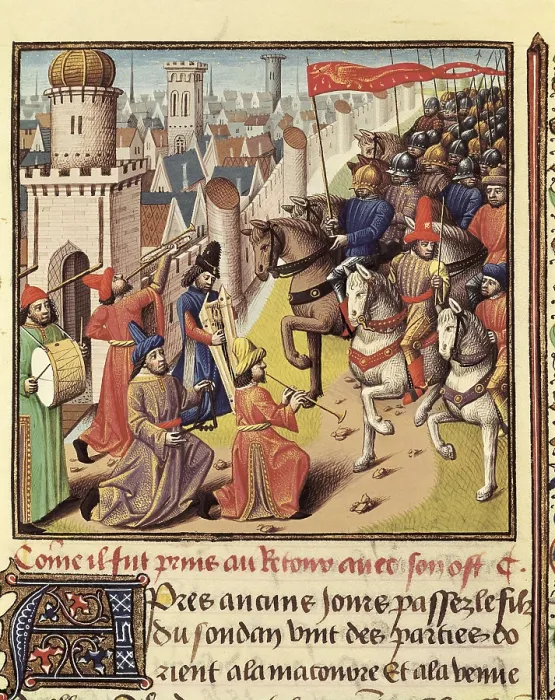 Com̄e il fut prins au Retour avec son ost C.
Apres aucuns Jours passez le filz
du soudan vint des parties do
rient a la maconvre Et a la venue